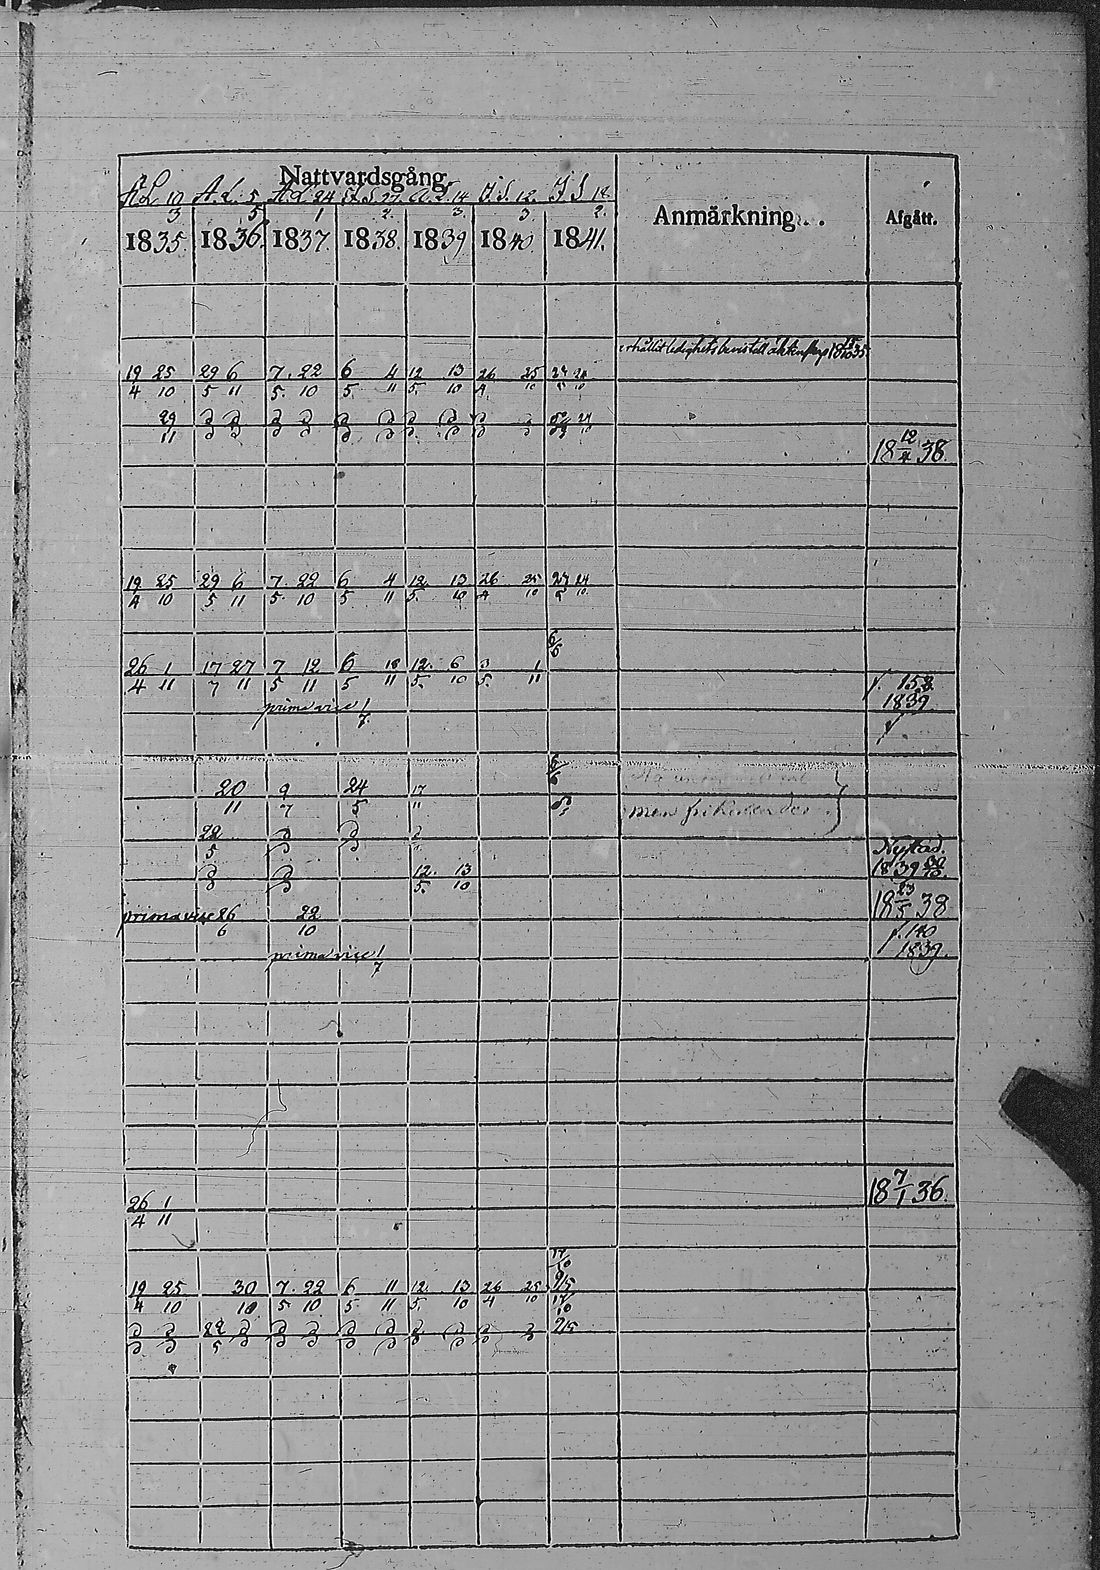 Nattvardsgång.
A. L. 10/3 A. L. 5/5 A. L. 24/1 J. S. 27/2. A. L. 14/3. J. S. 12/3. J. S. 18/2.
1835. 1836. 1837. 1838. 1839 1840 1841. Anmärkning... Afgått.
erhållit ledighets bevis till äktenskap 18 35
19/4 25/10 29/5 6/11 7/5. 22/10 6/5. 4/11 12/5. 13/10 26/4 25/10
29/11 d d d d d d d d d d
18 12/4 38.
19/4 25/10 29/5 6/11 7/5. 22/10 6/5 4/11 12/5. 13/10 26/4 25/10
6/6
26/4 1/11 17/7 27/11 7/5 12/11 6/5 18/11 12/5. 6/10 3/5. 1/11
f. 158.
1839.
prima vice 1/7
20/11 9/7 24/5 17/11
men frikänd
22/5 d d
Nystad.
1839
d d 12/5. 13/10
18 23/5 38
prima vice 26/6 22/10
f. 140
1839.
prima vice 1/7
18 7/1 36.
26/4 1/11
17/10
19/4 25/10 30/10 7/5 22/10 6/5 11/11 12/5. 13/10 26/4 25/10 2/5
17/10
d d 22/5 d d d d d d d d d 2/5